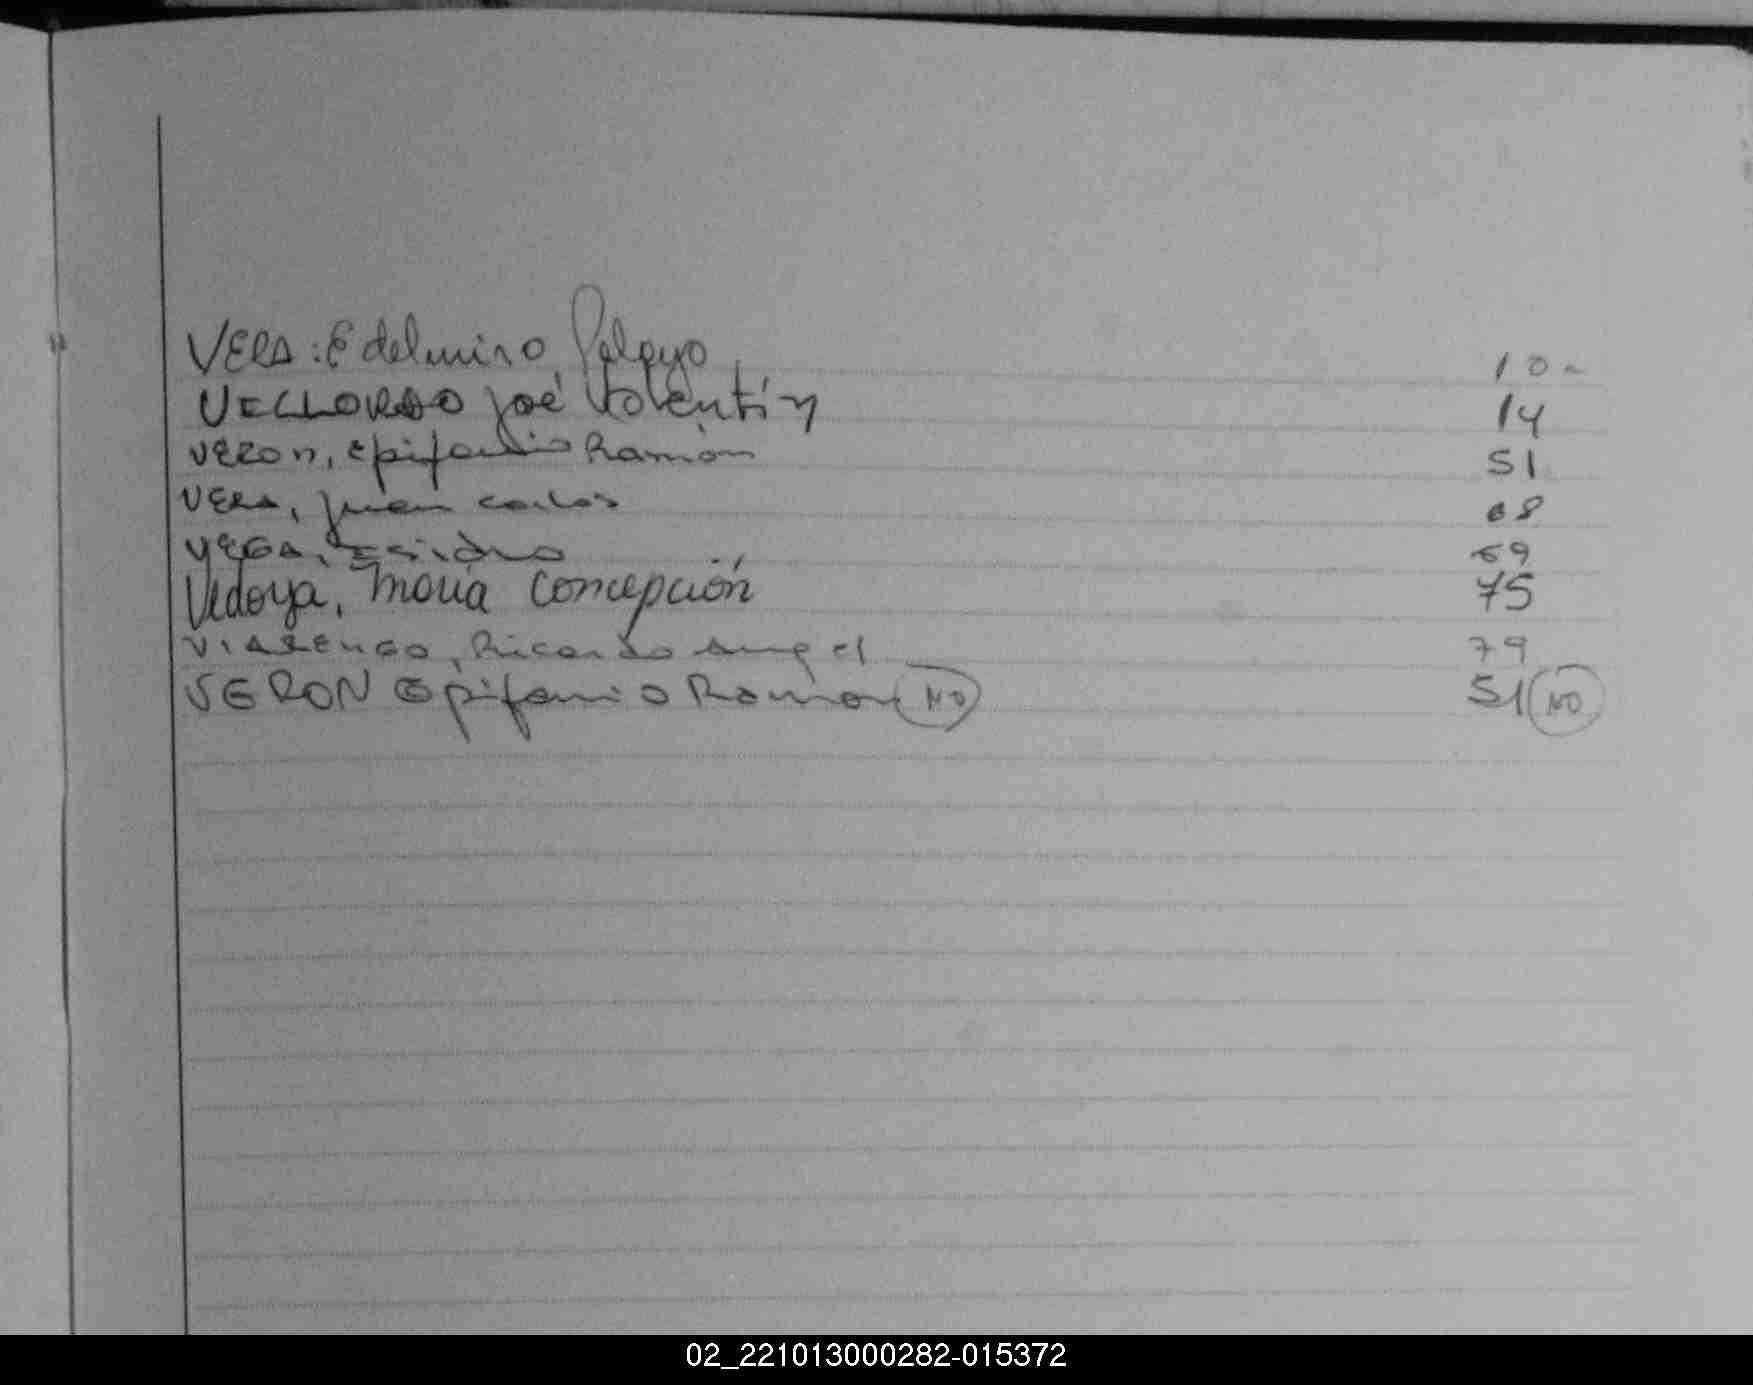 VERA: Edelmiro Pelayo 10
VELLORDO José Valentín 14
VERON, Epifanio Ramón 51
VERA, Juan Carlos 68
VEGA, Isidro 69
Vedoya, María Concepción 75
VIARENGO, Ricardo Angel 79
VERON Epifanio Ramon NO 51 NO
02_221013000282-015372